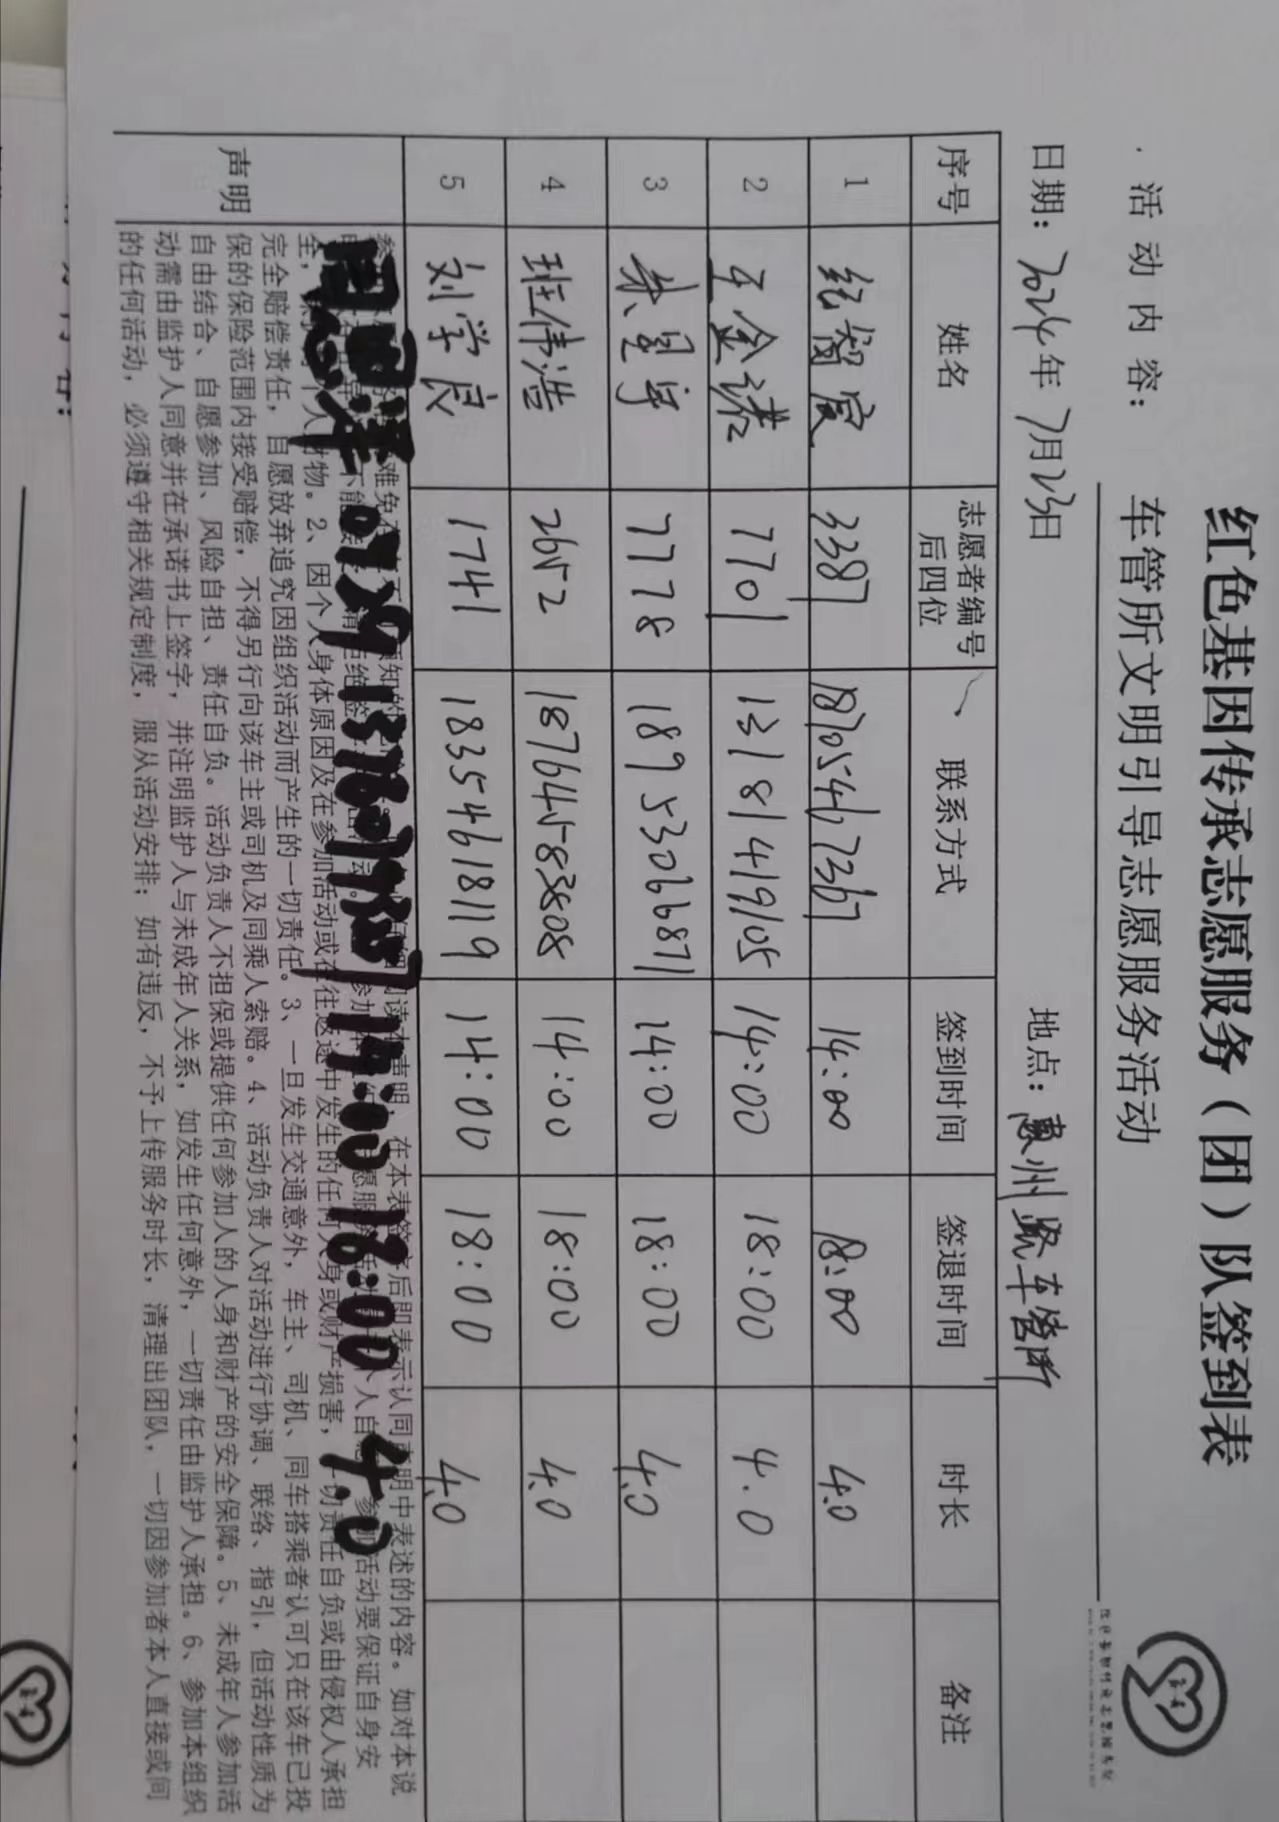 红色基因传承志愿服务（团）队签到表
活动内容： 车管所文明引导志愿服务活动
日期：2024年7月23日 地点：惠州路车管所
序号 姓名 志愿者编号后四位 联系方式 签到时间 签退时间 时长 备注
1 纪智宸 3387 18705467367 14:00 18:00 4.0
2 王金诺 7701 13181419105 14:00 18:00 4.0
3 朱星宇 7778 18953066871 14:00 18:00 4.0
4 班伟浩 2652 18764583808 14:00 18:00 4.0
5 刘学良 1741 18354618119 14:00 18:00 4.0
14:00 18:00 4.0
声明
阅读本声明，在本表签字后即表示认同声明中表述的内容。如对本说
参加活动要保证自身安
全， 个人财物。2、因个人身体原因及在参加活动或在往返途中发生的任何人身或财产损害，一切责任自负或由侵权人承担
完全赔偿责任，自愿放弃追究因组织活动而产生的一切责任。3、一旦发生交通意外，车主、司机、同车搭乘者认可只在该车已投
保的保险范围内接受赔偿，不得另行向该车主或司机及同乘人索赔。4、活动负责人对活动进行协调、联络、指引，但活动性质为
自由结合、自愿参加、风险自担、责任自负。活动负责人不担保或提供任何参加人的人身和财产的安全保障。5、未成年人参加活
动需由监护人同意并在承诺书上签字，并注明监护人与未成年人关系，如发生任何意外，一切责任由监护人承担。6、参加本组织
的任何活动，必须遵守相关规定制度，服从活动安排；如有违反，不予上传服务时长，清理出团队，一切因参加者本人直接或间